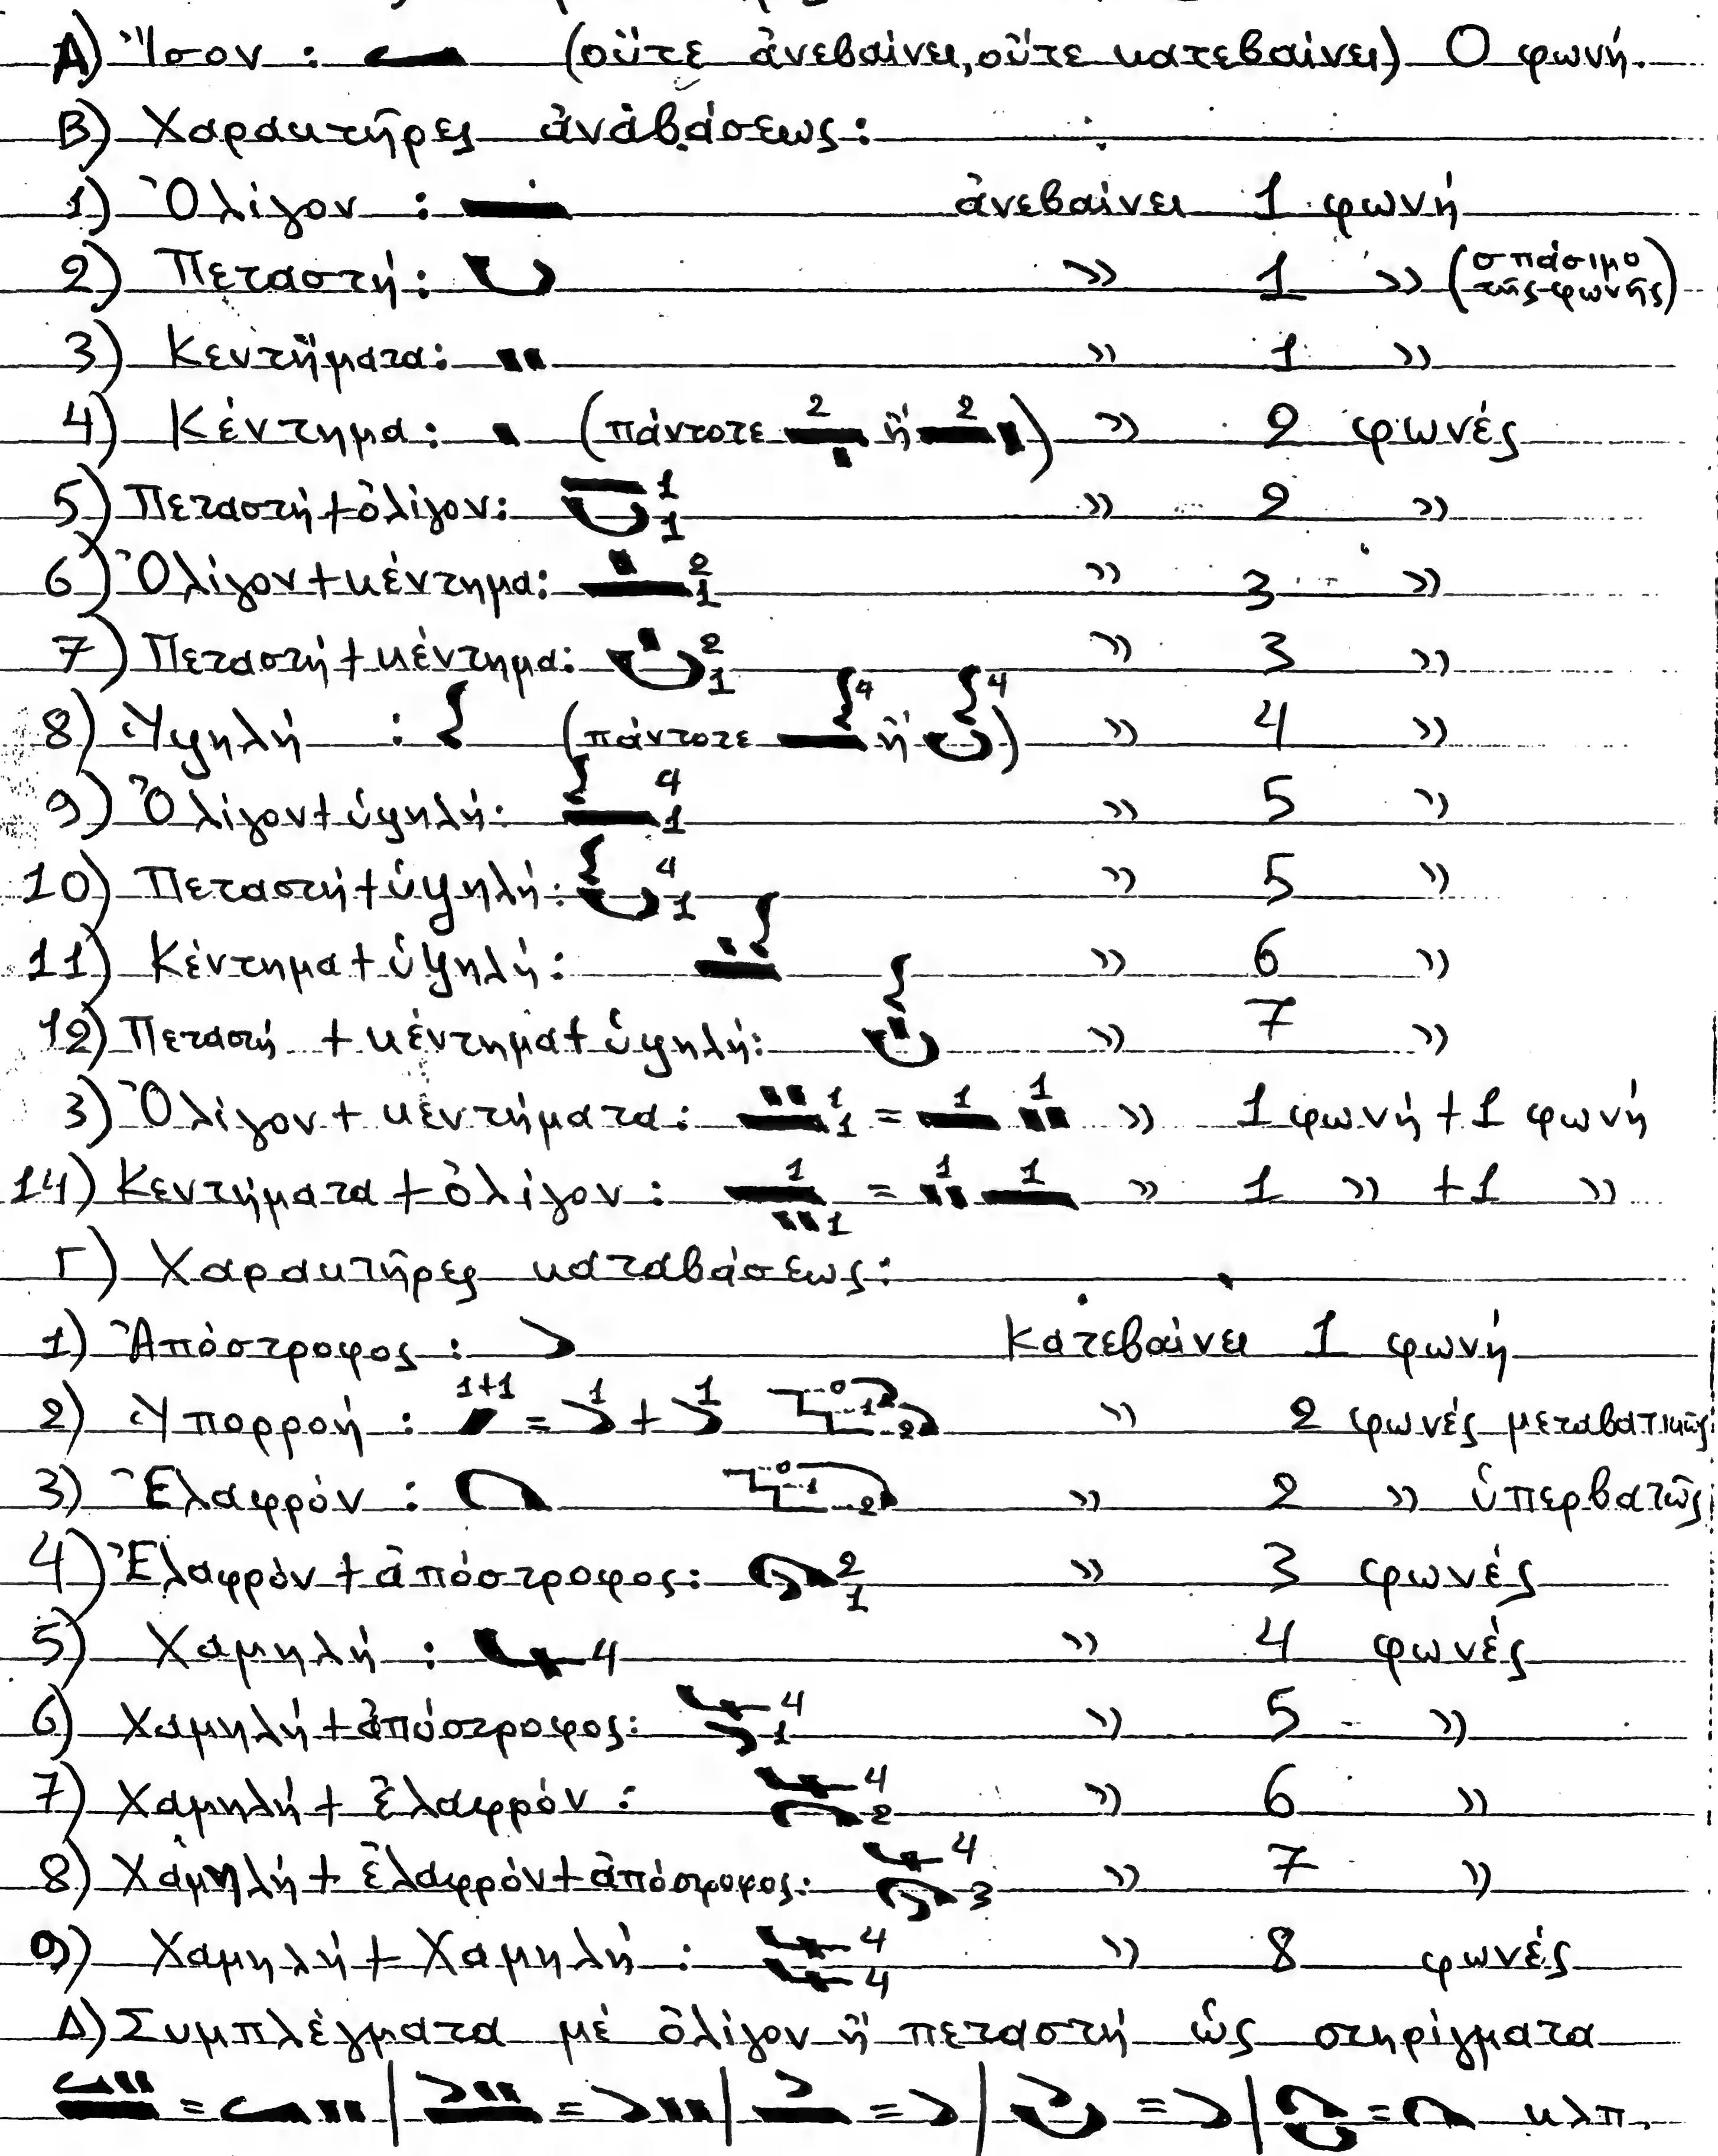 Α) Ἴσον : (οὔτε ἀνεβαίνει, οὔτε κατεβαίνει) 0 φωνή.
Β) Χαρακτῆρες ἀναβάσεως:
1) Ὀλίγον : ἀνεβαίνει 1 φωνή
2) Πεταστή: » 1 » (σπάσιμο τῆς φωνῆς)
3) Κεντήματα: » 1 »
4) Κέντημα: (πάντοτε 2 ἤ 2) » 2 φωνές
5) Πεταστή+ὀλίγον: 1 1 » 2 »
6) Ὀλίγον+κέντημα: 2 1 » 3 »
7) Πεταστή+κέντημα: 2 1 » 3 »
8) Ὑψηλή : (πάντοτε 4 ἤ 4) » 4 »
9) Ὀλίγον+ὑψηλή: 4 1 » 5 »
10) Πεταστή+ὑψηλή: 4 1 » 5 »
11) Κέντημα+ὑψηλή: » 6 »
12) Πεταστή + κέντημα+ὑψηλή: » 7 »
3) Ὀλίγον+κεντήματα: 1 1 = 1 1 » 1 φωνή+1 φωνή
14) Κεντήματα+ὀλίγον: 1 1 = 1 1 » 1 » +1 »
Γ) Χαρακτῆρες καταβάσεως:
1) Ἀπόστροφος : Κατεβαίνει 1 φωνή
2) Ὑπορροή : 1+1 = 1 + 1 0 1 2 » 2 φωνές μεταβατικῶς
3) Ἐλαφρόν : 0 1 2 » 2 » ὑπερβατῶς
4) Ἐλαφρόν+ἀπόστροφος: 2 1 » 3 φωνές
5) Χαμηλή : 4 » 4 φωνές
6) Χαμηλή+ἀπόστροφος: 4 1 » 5 »
7) Χαμηλή+ἐλαφρόν : 4 2 » 6 »
8) Χαμηλή+ἐλαφρόν+ἀπόστροφος: 4 3 » 7 »
9) Χαμηλή+Χαμηλή : 4 4 » 8 φωνές
Δ) Συμπλέγματα μέ ὀλίγον ἤ πεταστή ὡς στηρίγματα
= | = | = | = | = κλπ.